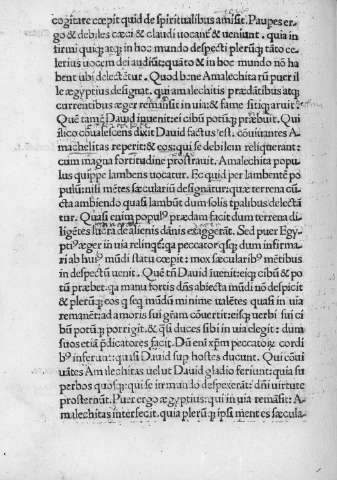 cogitare cœpit quid de spiritualibus amisit. Paupes er-
go & debiles cæci & claudi uocant᷑ & ueniunt. quia in
firmi quiq; atq; in hoc mundo despecti plerūq; tāto ce-
lerius uocem dei audiūt: quāto & in hoc mundo nō ha
bent ubi delectētur. Quod bene Amalechita rū puer il
le ægyptius designat. qui amalechitis prædātibus atq;
currentibus æger remāsit in uia: & fame sitiq; aruit.
Quē tamē Dauid inuenit: ei cibū potūq; præbuit. Qui
ilico cōualescens dixit Dauid factus est. cōuiuantes A-
machelitas reperit: & eos: qui se debilem reliquerant:
cum magna fortitudine prostrauit. Amalechita popu
lus quippe lambens uocatur. Ec quid per lambentē po
pulū: nisi mētes sæculariū designātur: quæ terrena cū-
cta ambiendo quasi lambūt dum solis tp̄alibus delectā
tur. Quasi enim popul⁹ prædam facit dum terrena di-
ligētes lucra de alienis dānis exaggerāt. Sed puer Egy-
pti⁹ æger in uia relinq̄t: qa peccator q̄sq; dum infirma-
ri ab hui⁹ mūdi statu cœpit: mox sæcularib⁹ mētibus
in despectū uenit. Quē tn̄ Dauid inuenit: eiq; cibū & po
tū præbet. qa manu fortis dn̄s abiecta mūdi nō despicit
& plerūq; eos q seq mūdū minime ualētes quasi in uia
remanēt: ad amoris sui gr̄am cōuertit: eisq; uerbi sui ci
bū potūq; porrigit. & q̄si duces sibi in uia elegit: dum
suos etiā p̄dicatores facit. Dū eni xp̄m peccatorꝝ cordi
b⁹ inferunt: quasi Dauid sup hostes ducunt. Qui cōui
uātes Amalechitas uelut Dauid gladio feriunt: quia su
perbos quosq; qui se in mundo despexerāt: dn̄i uirtute
prosternūt. Puer ergo ægyptius: qui in uia remāsit: A-
malechitas intersecit. quia plerūq; ipsi mentes sæcula-